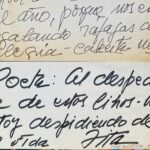 el año, porque nos e
galando ráfagas de
alegría - caliente
Poeta: Al despedi
e de estos lirios - n
toy despidiendo de
vida